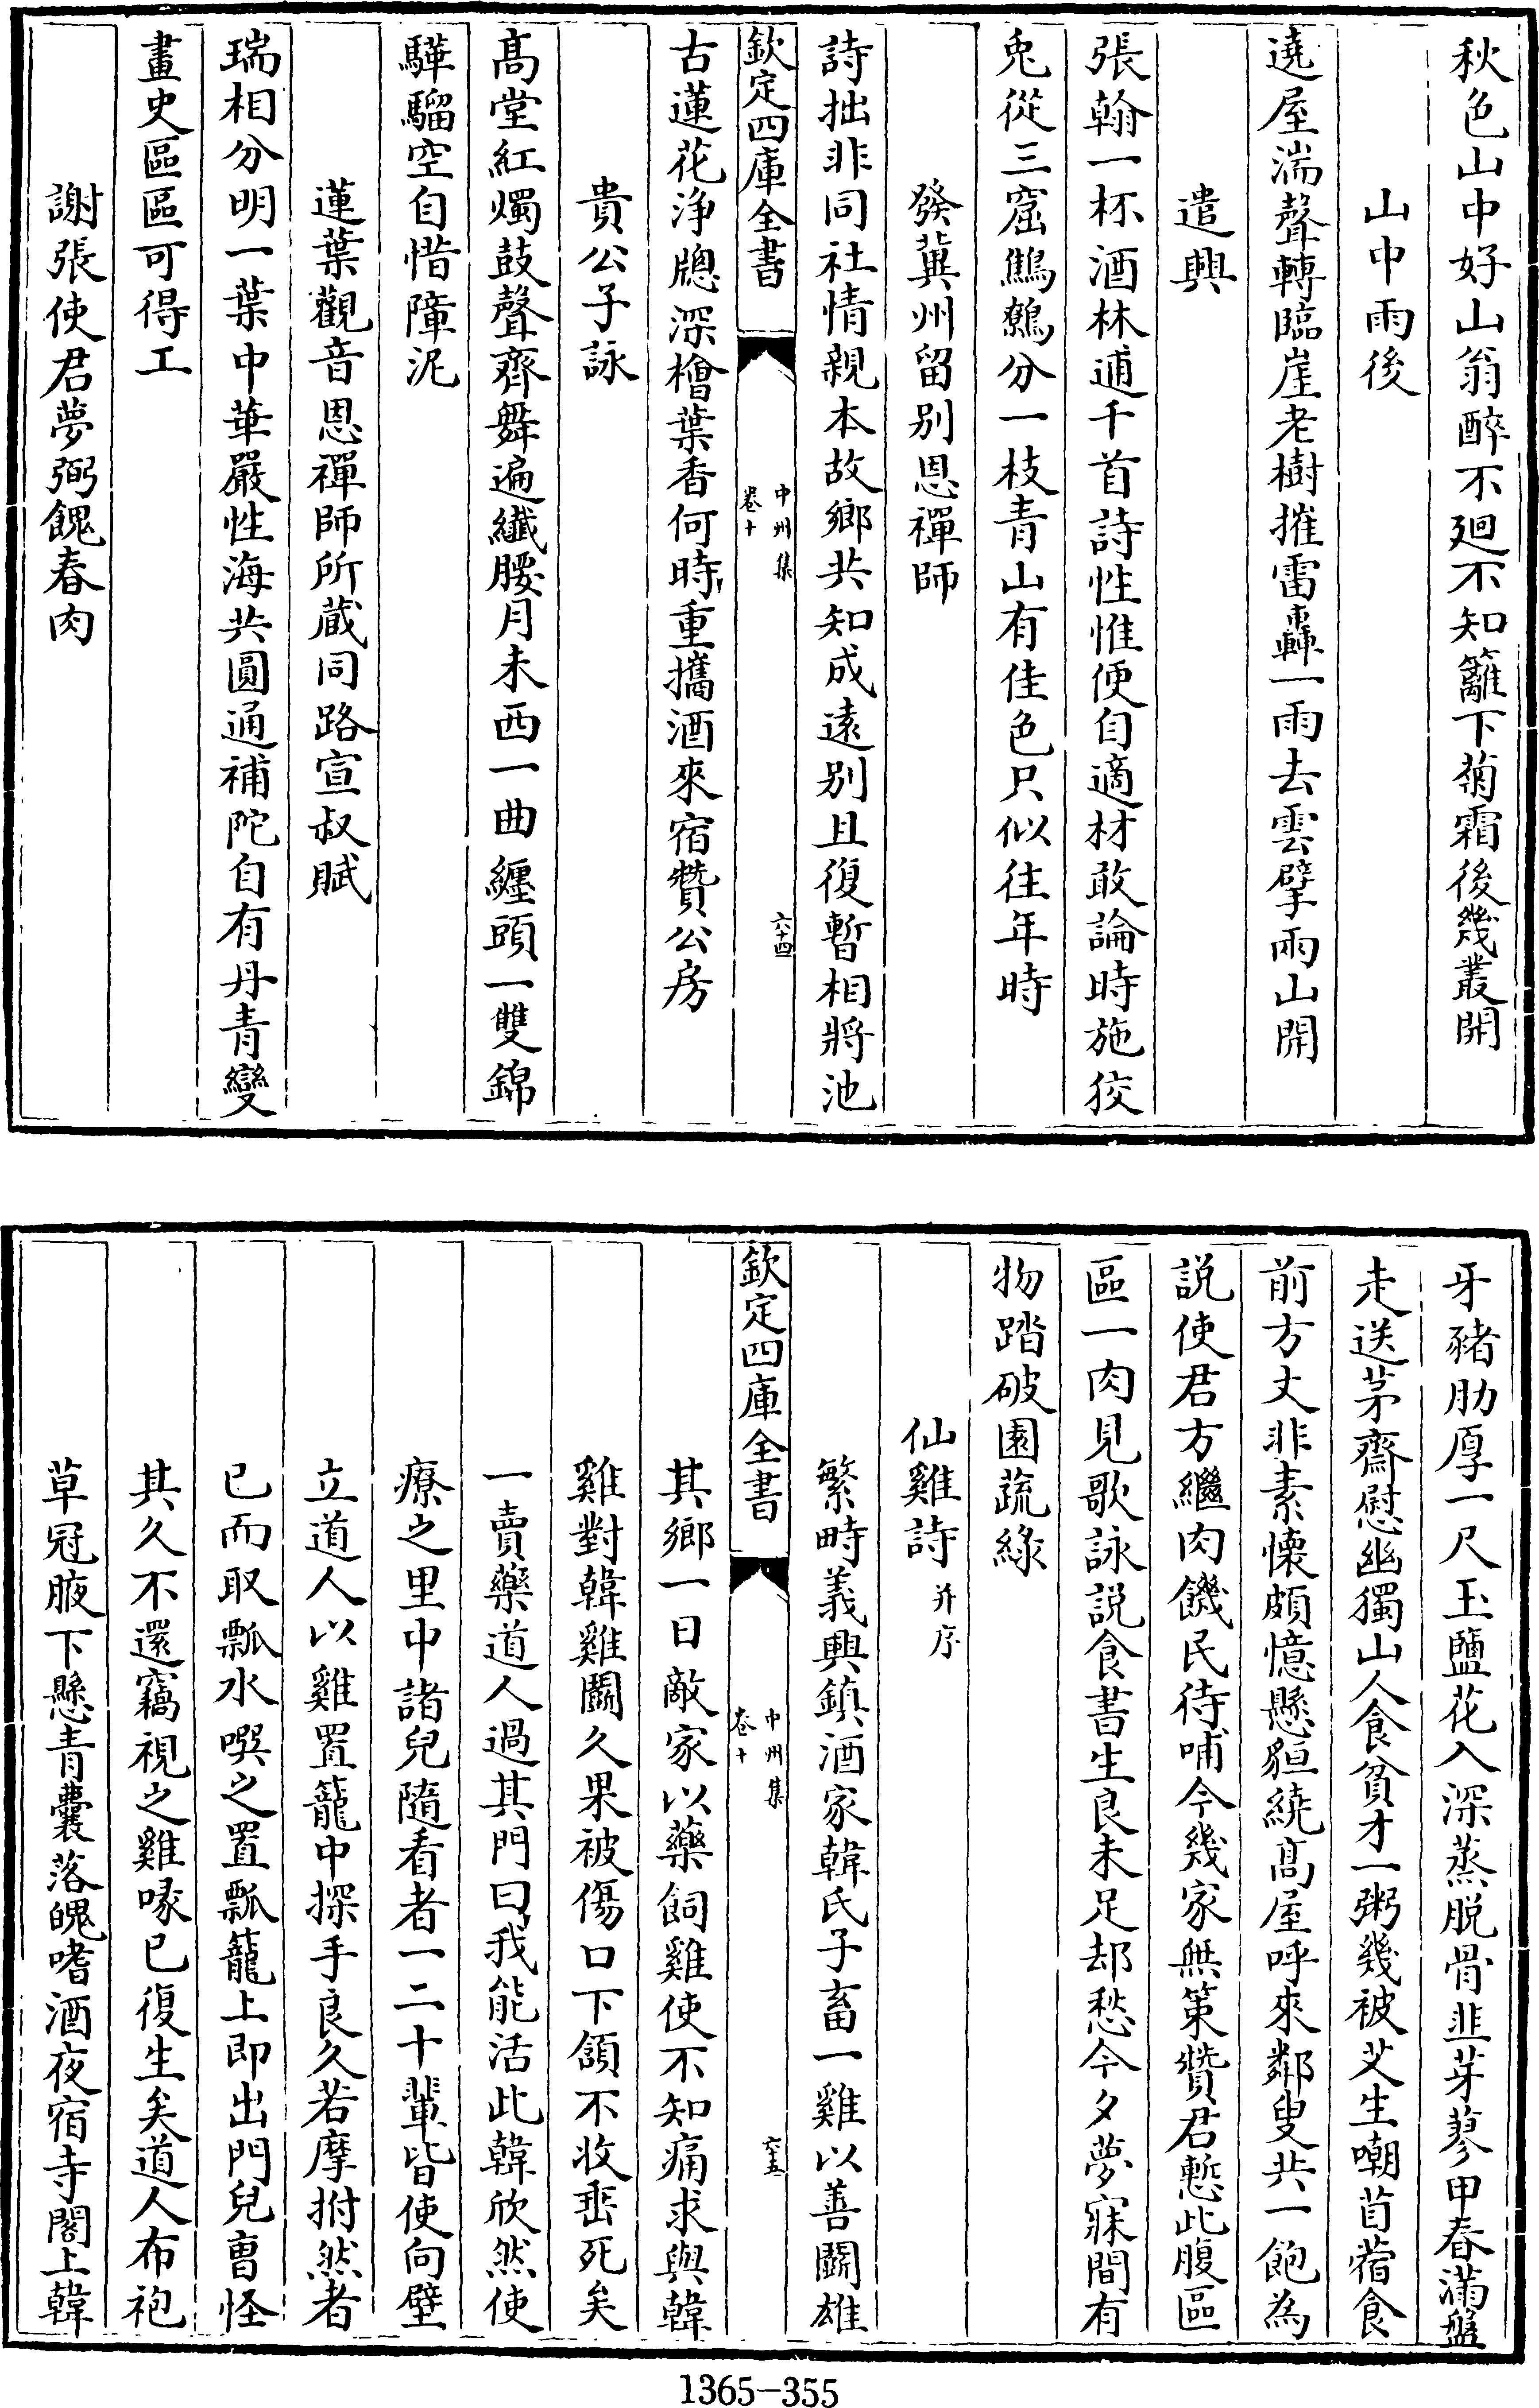 秋色山中好山翁醉不廻不知籬下菊霜後幾叢開
山中雨後
遶屋湍聲轉臨崖老樹摧雷轟一雨去雲擘兩山開
遣興
張翰一杯酒林逋千首詩性惟便自適材敢論時施狡
兎從三窟鷦鷯分一枝青山有佳色只似往年時
發冀州留別恩禪師
詩拙非同社情親本故鄉共知成遠別且復暫相將池
欽定四庫全書
中州集
卷十
六十四
古蓮花浄牕深檜葉香何時重攜酒來宿贊公房
貴公子詠
髙堂紅燭鼓聲齊舞遍纖腰月未西一曲纒頭一雙錦
驊騮空自惜障泥
蓮葉觀音恩禪師所蔵同路宣叔賦
瑞相分明一葉中華嚴性海共圓通補陀自有丹青變
畫史區區可得工
謝張使君夢弼餽春肉
牙豬肋厚一尺玉鹽花入深蒸脱骨韭芽蓼甲春滿盤
走送茅齋慰幽獨山人食貧才一粥幾被艾生嘲苜蓿食
前方丈非素懐頗憶懸貆繞髙屋呼來鄰叟共一飽為
説使君方繼肉饑民待哺今幾家無策贊君慙此腹區
區一肉見歌詠説食書生良未足却愁今夕夢寐間有
物踏破園蔬綠
仙雞詩并序
繁畤義興鎮酒家韓氏子畜一雞以善鬬雄
欽定四庫全書
中州集
卷十
六十五
其鄉一日敵家以藥飼雞使不知痛求與韓
雞對韓雞鬬久果被傷口下頷不收垂死矣
一賣藥道人過其門曰我能活此韓欣然使
療之里中諸兒隨看者一二十輩皆使向壁
立道人以雞置籠中探手良久若摩拊然者
已而取瓢水噀之置瓢籠上即出門兒曺怪
其久不還竊視之雞喙已復生矣道人布袍
草冠腋下懸青囊落魄嗜酒夜宿寺閣上韓
1365-355